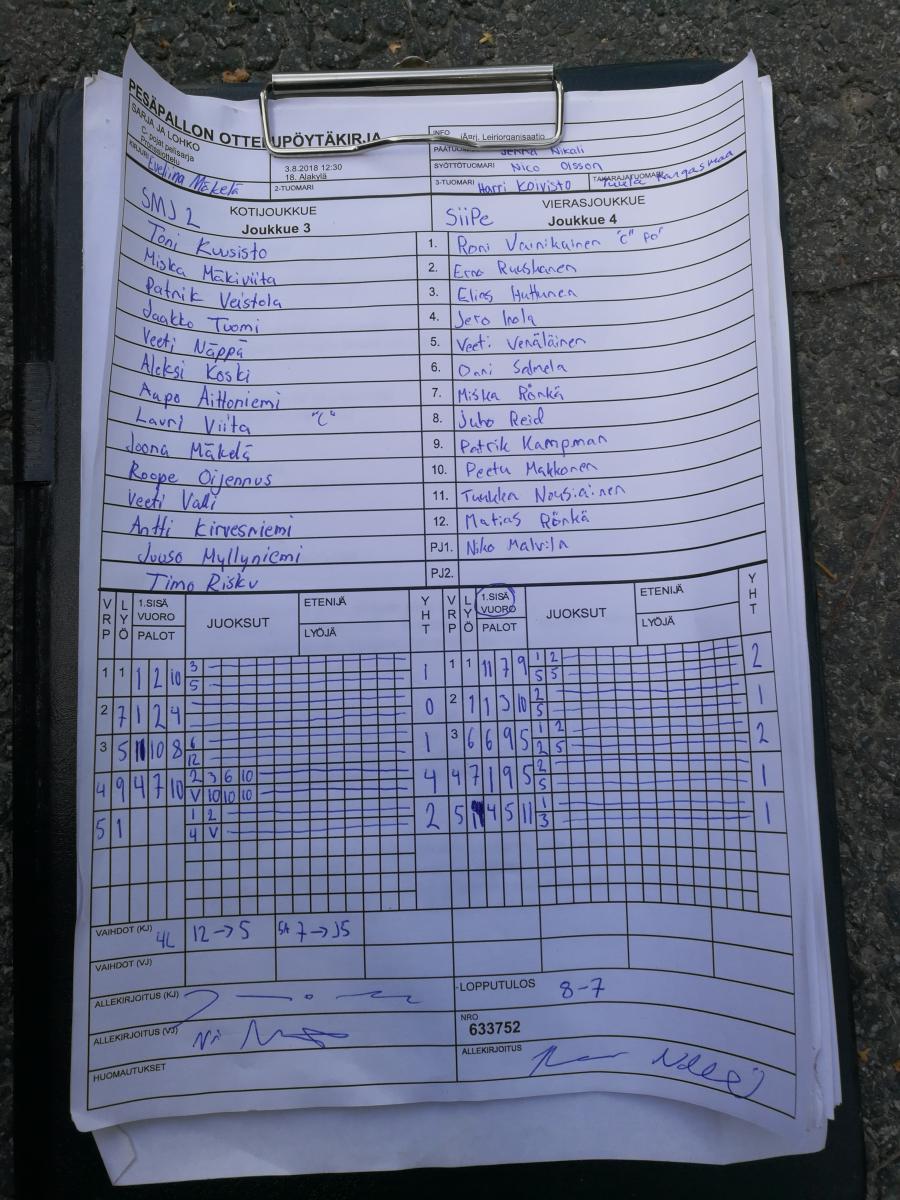 PESÄPALLON OTTELUPÖYTÄKIRJA
SARJA JA LOHKO
C pojat perisarja
INFO
Jäärj. Leiriorganisaatio
PÄÄTUOMARI Jenna Nikali
SYÖTTÖTUOMARI Nico Olsson
KIRJURI Eveliina Mäkelä
3.8.2018 12:30
18. Alakylä
2-TUOMARI
3-TUOMARI Harri Koivisto
TAKARAJATUOMARI Tuula Kangasmaa
SMJ 2
KOTIJOUKKUE
Joukkue 3
SiiPe
VIERASJOUKKUE
Joukkue 4
Toni Kuusisto 1. Roni Vainikainen "C" po"
Miska Mäkiviita 2. Eino Ruuskanen
Patrik Veistola 3. Elias Huttunen
Jaakko Tuomi 4. Jero Isola
Veeti Näppä 5. Veeti Venäläinen
Aleksi Koski 6. Onni Salmela
Aapo Aittoniemi 7. Miska Rönkä
Lauri Viita "C" 8. Juho Reid
Joona Mäkelä 9. Patrik Kampman
Roope Oijennus 10. Peetu Makkonen
Veeti Valli 11. Tuukka Nousiainen
Antti Kirvesniemi 12. Matias Rönkä
Juuso Myllyniemi PJ1. Niko Malvila
Timo Risku PJ2.
VRP LYÖ 1.SISÄ VUORO PALOT JUOKSUT ETENIJÄ LYÖJÄ YHT VRP LYÖ 1.SISÄ VUORO PALOT JUOKSUT ETENIJÄ LYÖJÄ YHT
1 1 1 2 10 3 1 1 1 11 7 9 1 2 2
5 5 5
2 7 1 2 4 0 2 1 1 3 10 2 1
5
3 5 1 10 8 6 1 3 6 6 9 5 1 2 2
12 2 5
4 9 4 7 10 2 3 6 10 4 4 7 1 9 5 2 1
V 10 10 10 5
5 1 1 2 2 5 1 4 5 11 1 1
4 V 3
VAIHDOT (KJ) 4L 12→5 5A 7→J5
VAIHDOT (VJ)
ALLEKIRJOITUS (KJ)
LOPPUTULOS 8-7
ALLEKIRJOITUS (VJ)
NRO
633752
HUOMAUTUKSET
ALLEKIRJOITUS